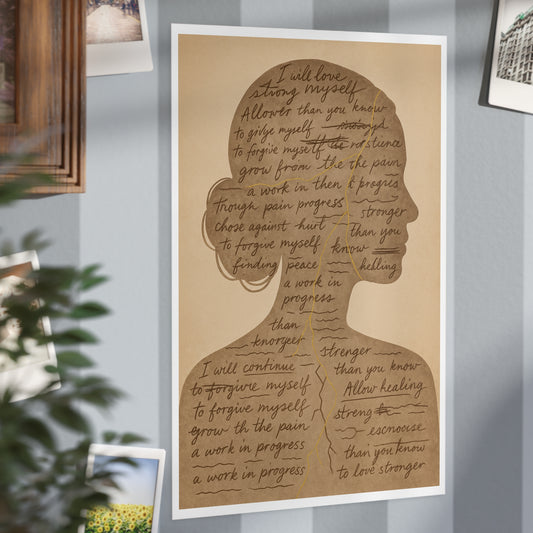 I will love
strong myself
Allower than you know
to givlye myself
to forgive myself the rostience
grow from the the pain
a work in then t progreis
though pain progress
chose against hurt stronger
to forgive myself than you
know
finding peace healing
a work in
progress
than
knoryeer
I will continue strenger
to forgivre myself than you know
to forgive myself Allow healing
grow th the pain streng
a work in progress escnocise
a work in progress than you know
to love stronger